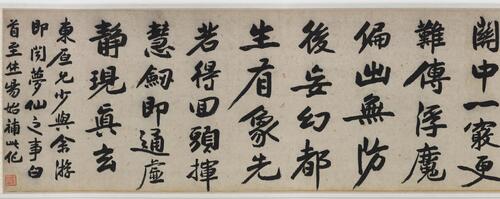 關中一竅更
難傳浮魔
偏出無防
後妄幻都
生有象先
若得回頭揮
慧劒即通虛
靜現真玄
東原兄少與余游
即閱夢仙之事白
首至始補此作